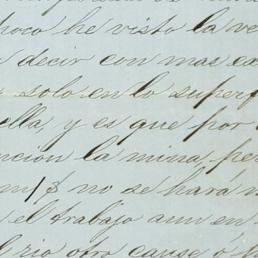 poco he visto la ve
decir con mas ex
solo en lo superf
ella, y es que por
ncion la mina, per
no se hará n
el trabajo aun en
rio otro cause ó